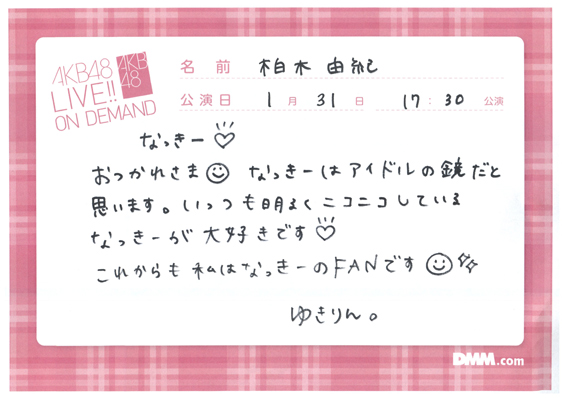 AKB48
LIVE!!
ON DEMAND
AKB
48
名前 柏木由紀
公演日 1月31日 17:30公演
なっきー♡
おつかれさま☺ なっきーはアイドルの鏡だと
思います。いっつも明るくニコニコしている
なっきーが大好きです♡
これからも私はなっきーのFANです☺
ゆきりん。
DMM.com